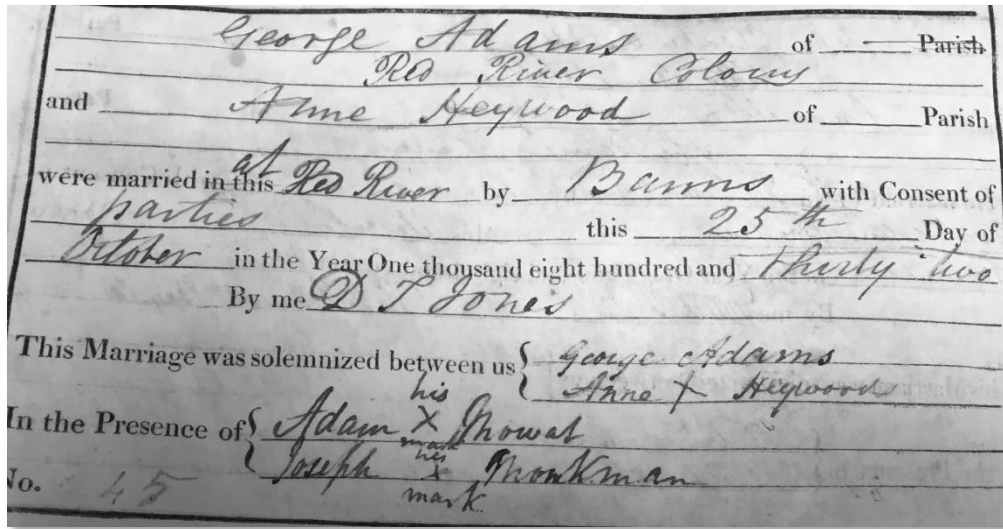 George Adams of Parish
Red River Colony
and Anne Heywood of Parish
at
were married in this Red River by Banns with Consent of
parties this 25th Day of
October in the Year One thousand eight hundred and Thirty two
By me D T Jones
This Marriage was solemnized between us { George Adams
Anne X Heywood
his
In the Presence of { Adam X Mowat
mark
his
Joseph X Monkman
mark
No. 45